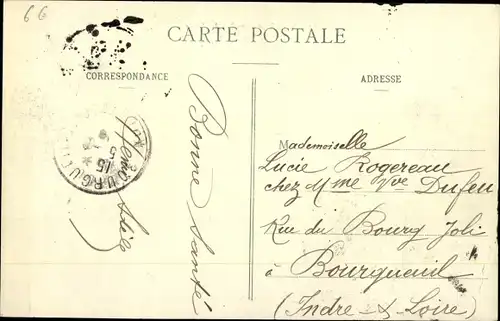 66
CARTE POSTALE
CORRESPONDANCE
ADRESSE
Bonne Santé
Mademoiselle
Lucie Rogereau
chez Mme Vve Dufeu
Rue du Bourg Joli
à Bourgueuil
(Indre-&-Loire)